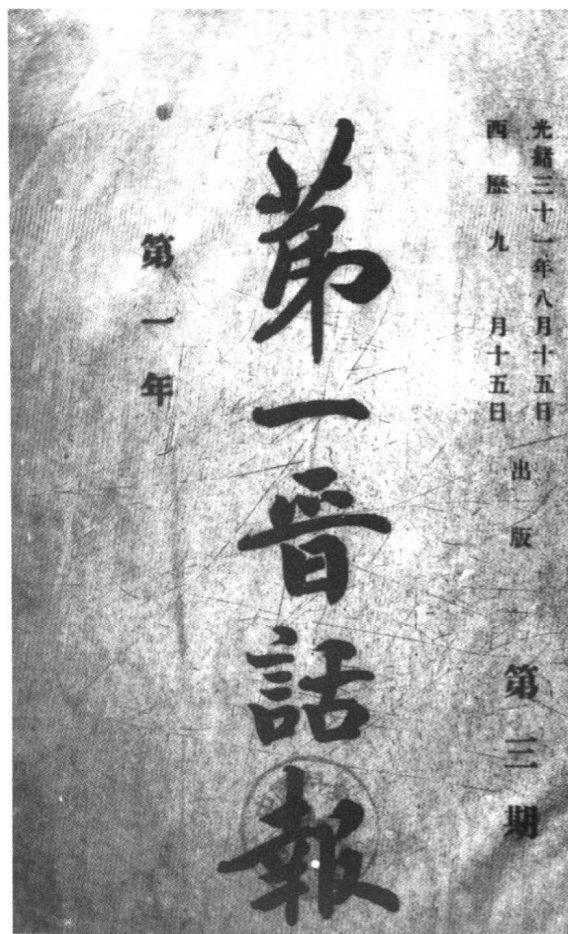 光緒三十一年八月十五日
西歷九月十五日
出版
第三期
第一晉話報
第一年